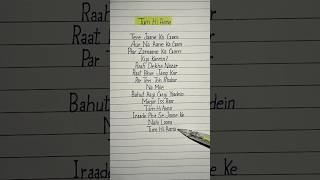 Tum Hi Aana
Tere Jaane Ka Gam
Aur Na Aane Ka Gam
Phir Zamaane Ka Gam
Kya Karein?
Raah Dekhe Nazar
Raat Bhar Jaag Kar
Par Teri Toh Khabar
Na Mile
Bahut Aayi Gayi Yaadein
Magar Iss Baar
Tum Hi Aana
Iraade Phir Se Jaane Ke
Nahi Laana
Tum Hi Aana
Raah
Raat
Par T
Bahut
Iraad